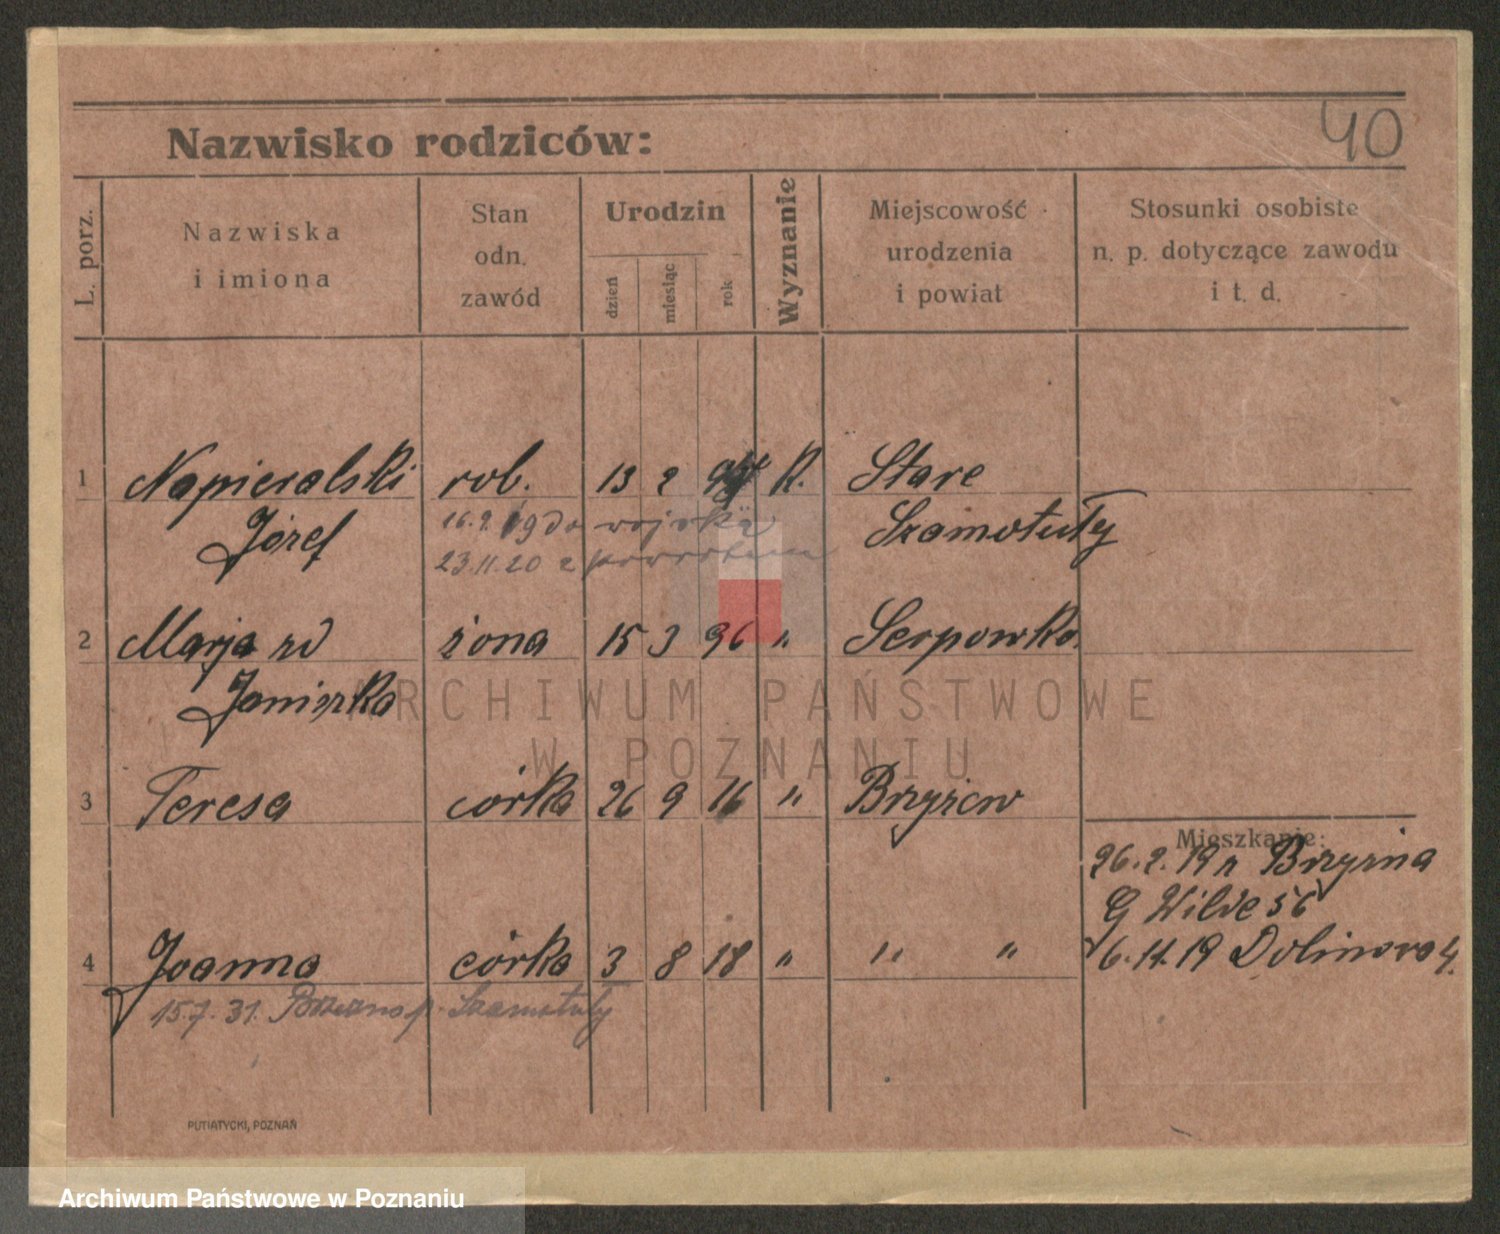 40
Nazwisko rodziców:
L. porz.
Nazwiska
i imiona
Stan
odn.
zawód
Urodzin
dzień
miesiąc
rok
Wyznanie
Miejscowość
urodzenia
i powiat
Stosunki osobiste
n. p. dotyczące zawodu
i t. d.
1 Napieralski rob. 13 2 K. Stare
Józef 16.9.19 do wojska Szamotuły
23.11.20 z powrotem
2 Marja zd żona 15 3 96 " Serpowko
Janiszka
ARCHIWUM PAŃSTWOWE
W POZNANIU
3 Teresa córka 26 9 16 "
Mieszkanie:
26.2.19 Brzyzna
G Wilde 56
4 Joanna córka 3 8 18 " " " 6.11.19 Dolinowa 4.
15.7.31. p. Szamotuły
PUTIATYCKI, POZNAŃ
Archiwum Państwowe w Poznaniu